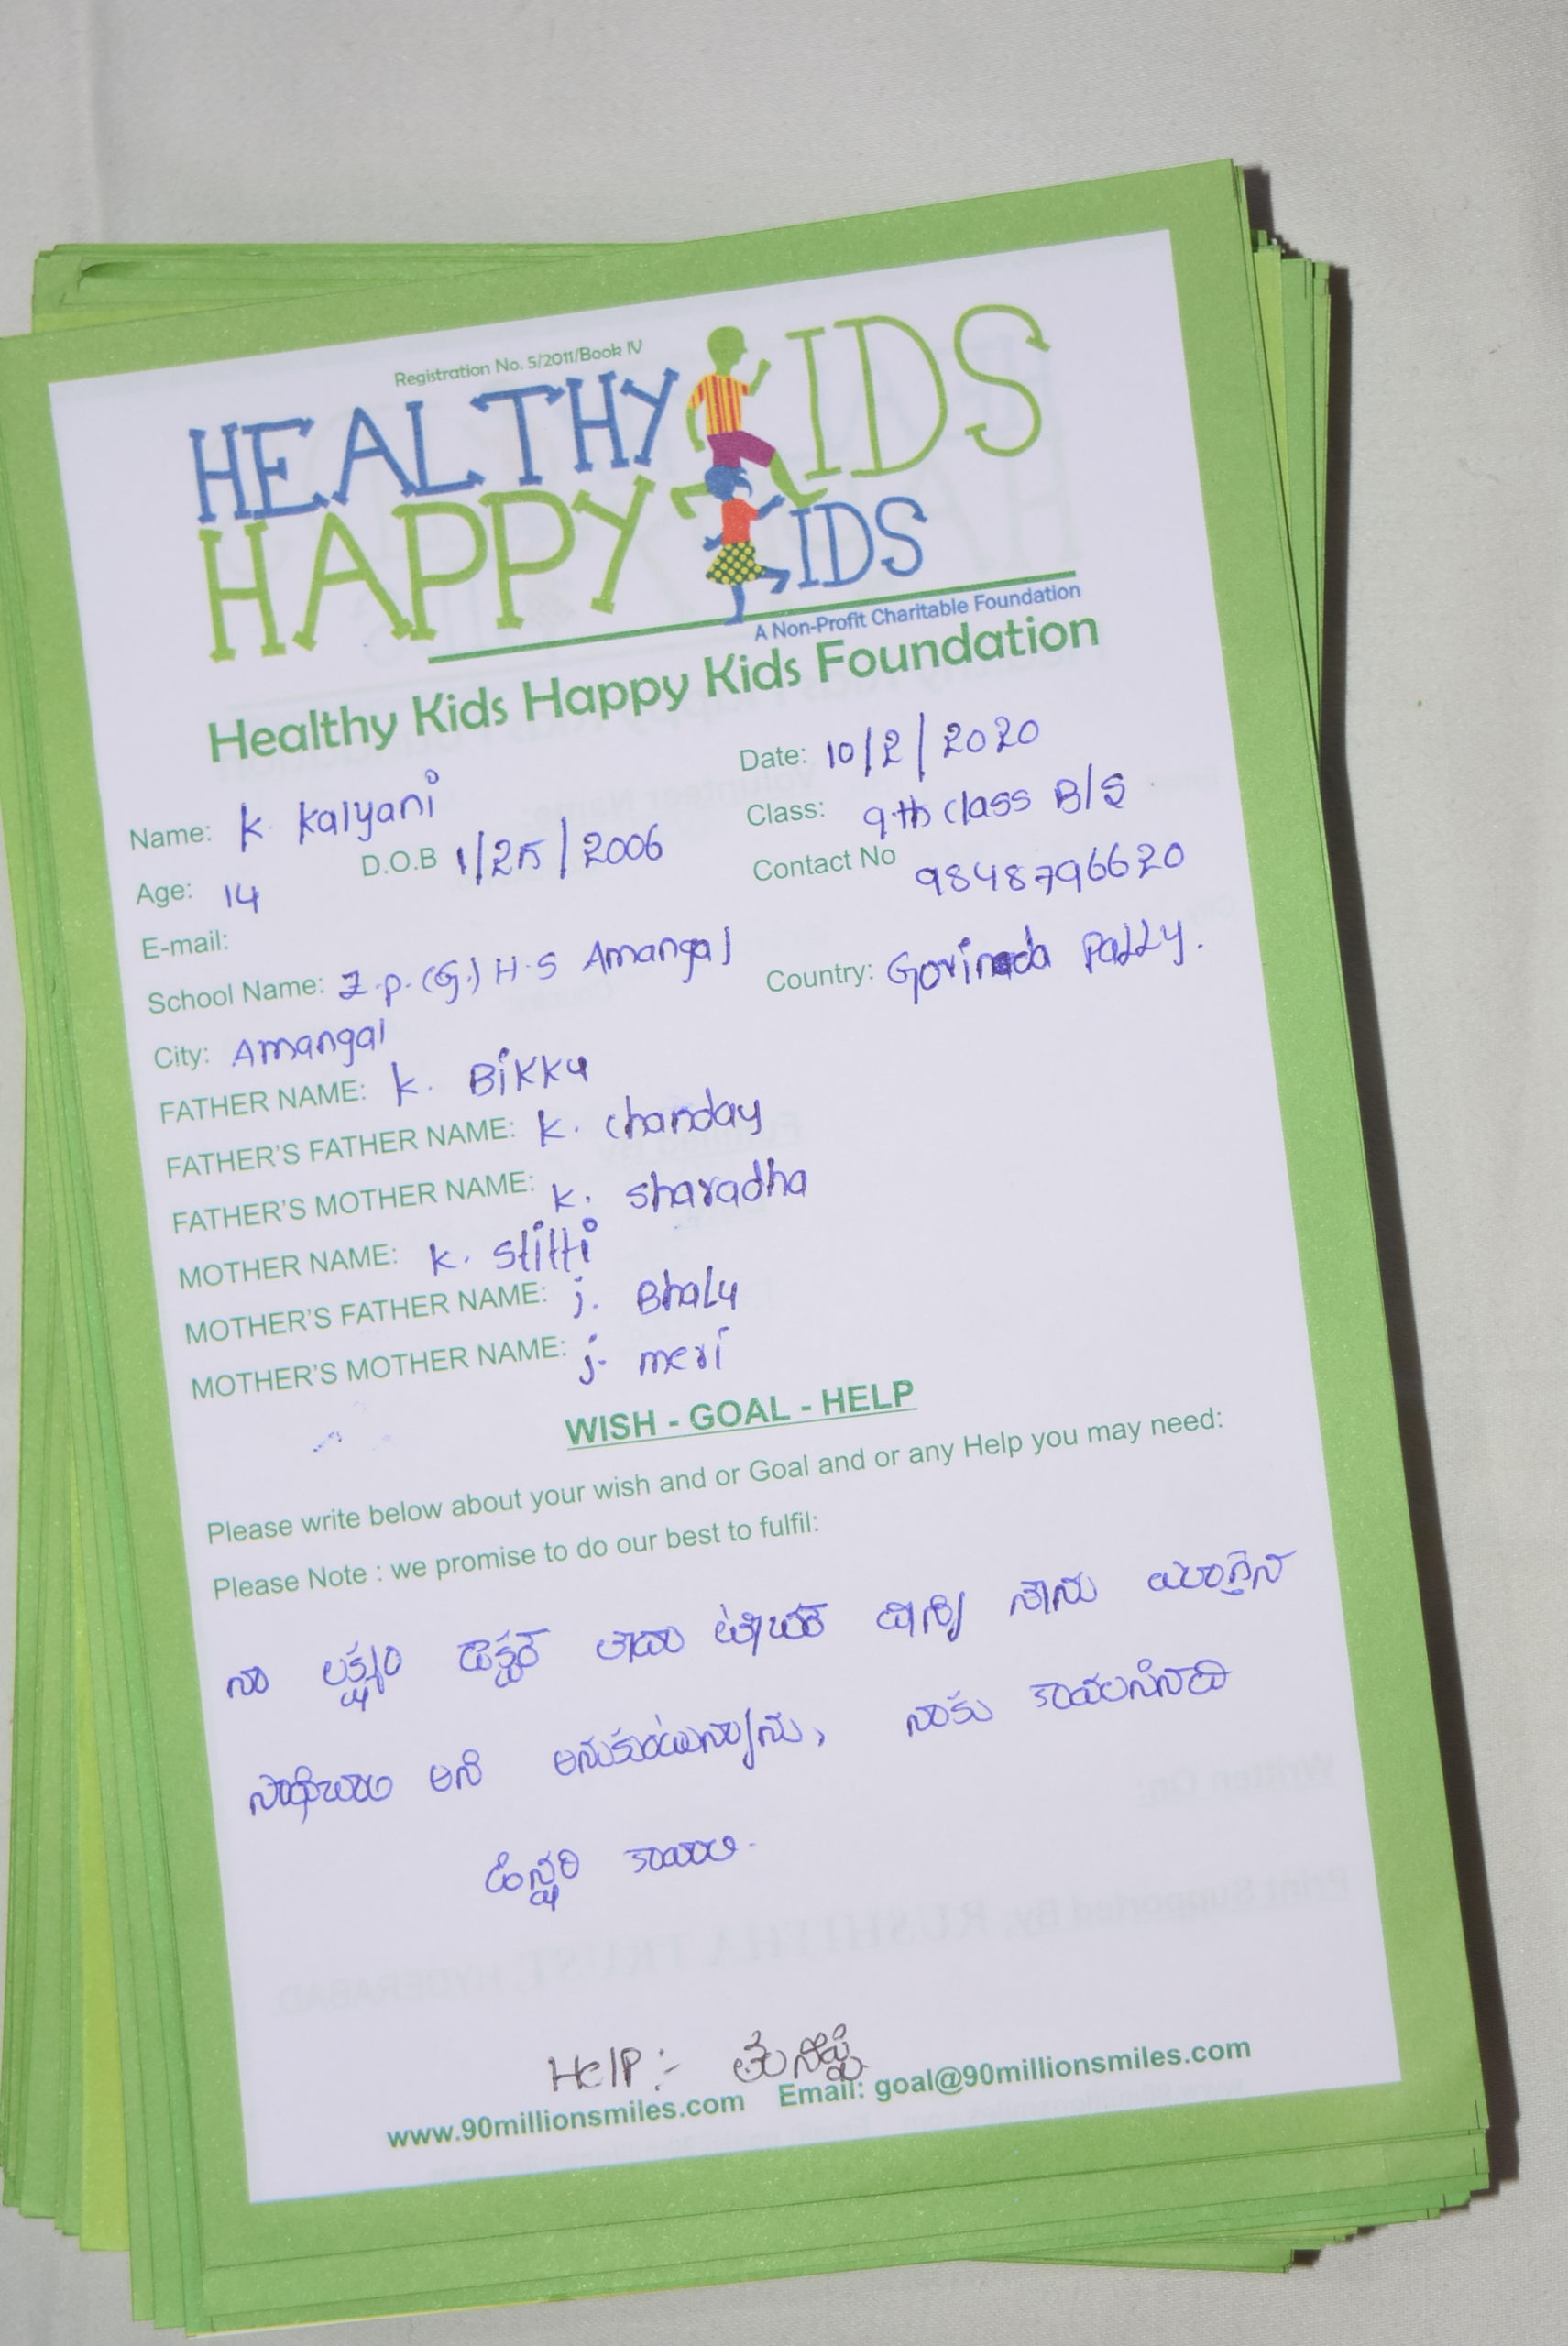 Registration No. 5/2011/Book IV
HEALTHY KIDS
HAPPY KIDS
A Non-Profit Charitable Foundation
Healthy Kids Happy Kids Foundation
Date: 10/2/2020
Name: K. Kalyani
Class: 9th class B/S
Age: 14 D.O.B 1/25/2006
Contact No 9848796620
E-mail:
School Name: Z.P.(G.) H.S Amangal
Country: Govinda Pally.
City: Amangal
FATHER NAME: K. Bikku
FATHER'S FATHER NAME: K. chanday
FATHER'S MOTHER NAME: K. sharadha
MOTHER NAME: K. stitti
MOTHER'S FATHER NAME: j. Bhalu
MOTHER'S MOTHER NAME: j. meri
WISH - GOAL - HELP
Please write below about your wish and or Goal and or any Help you may need:
Please Note : we promise to do our best to fulfil:
నా లక్ష్యం డాక్టర్ లేదా టీచర్ దీన్ని నేను
అని అనుకుంటున్నాను, నాకు కావలసినది
కావాలి.
HElP:-
www.90millionsmiles.com Email: goal@90millionsmiles.com